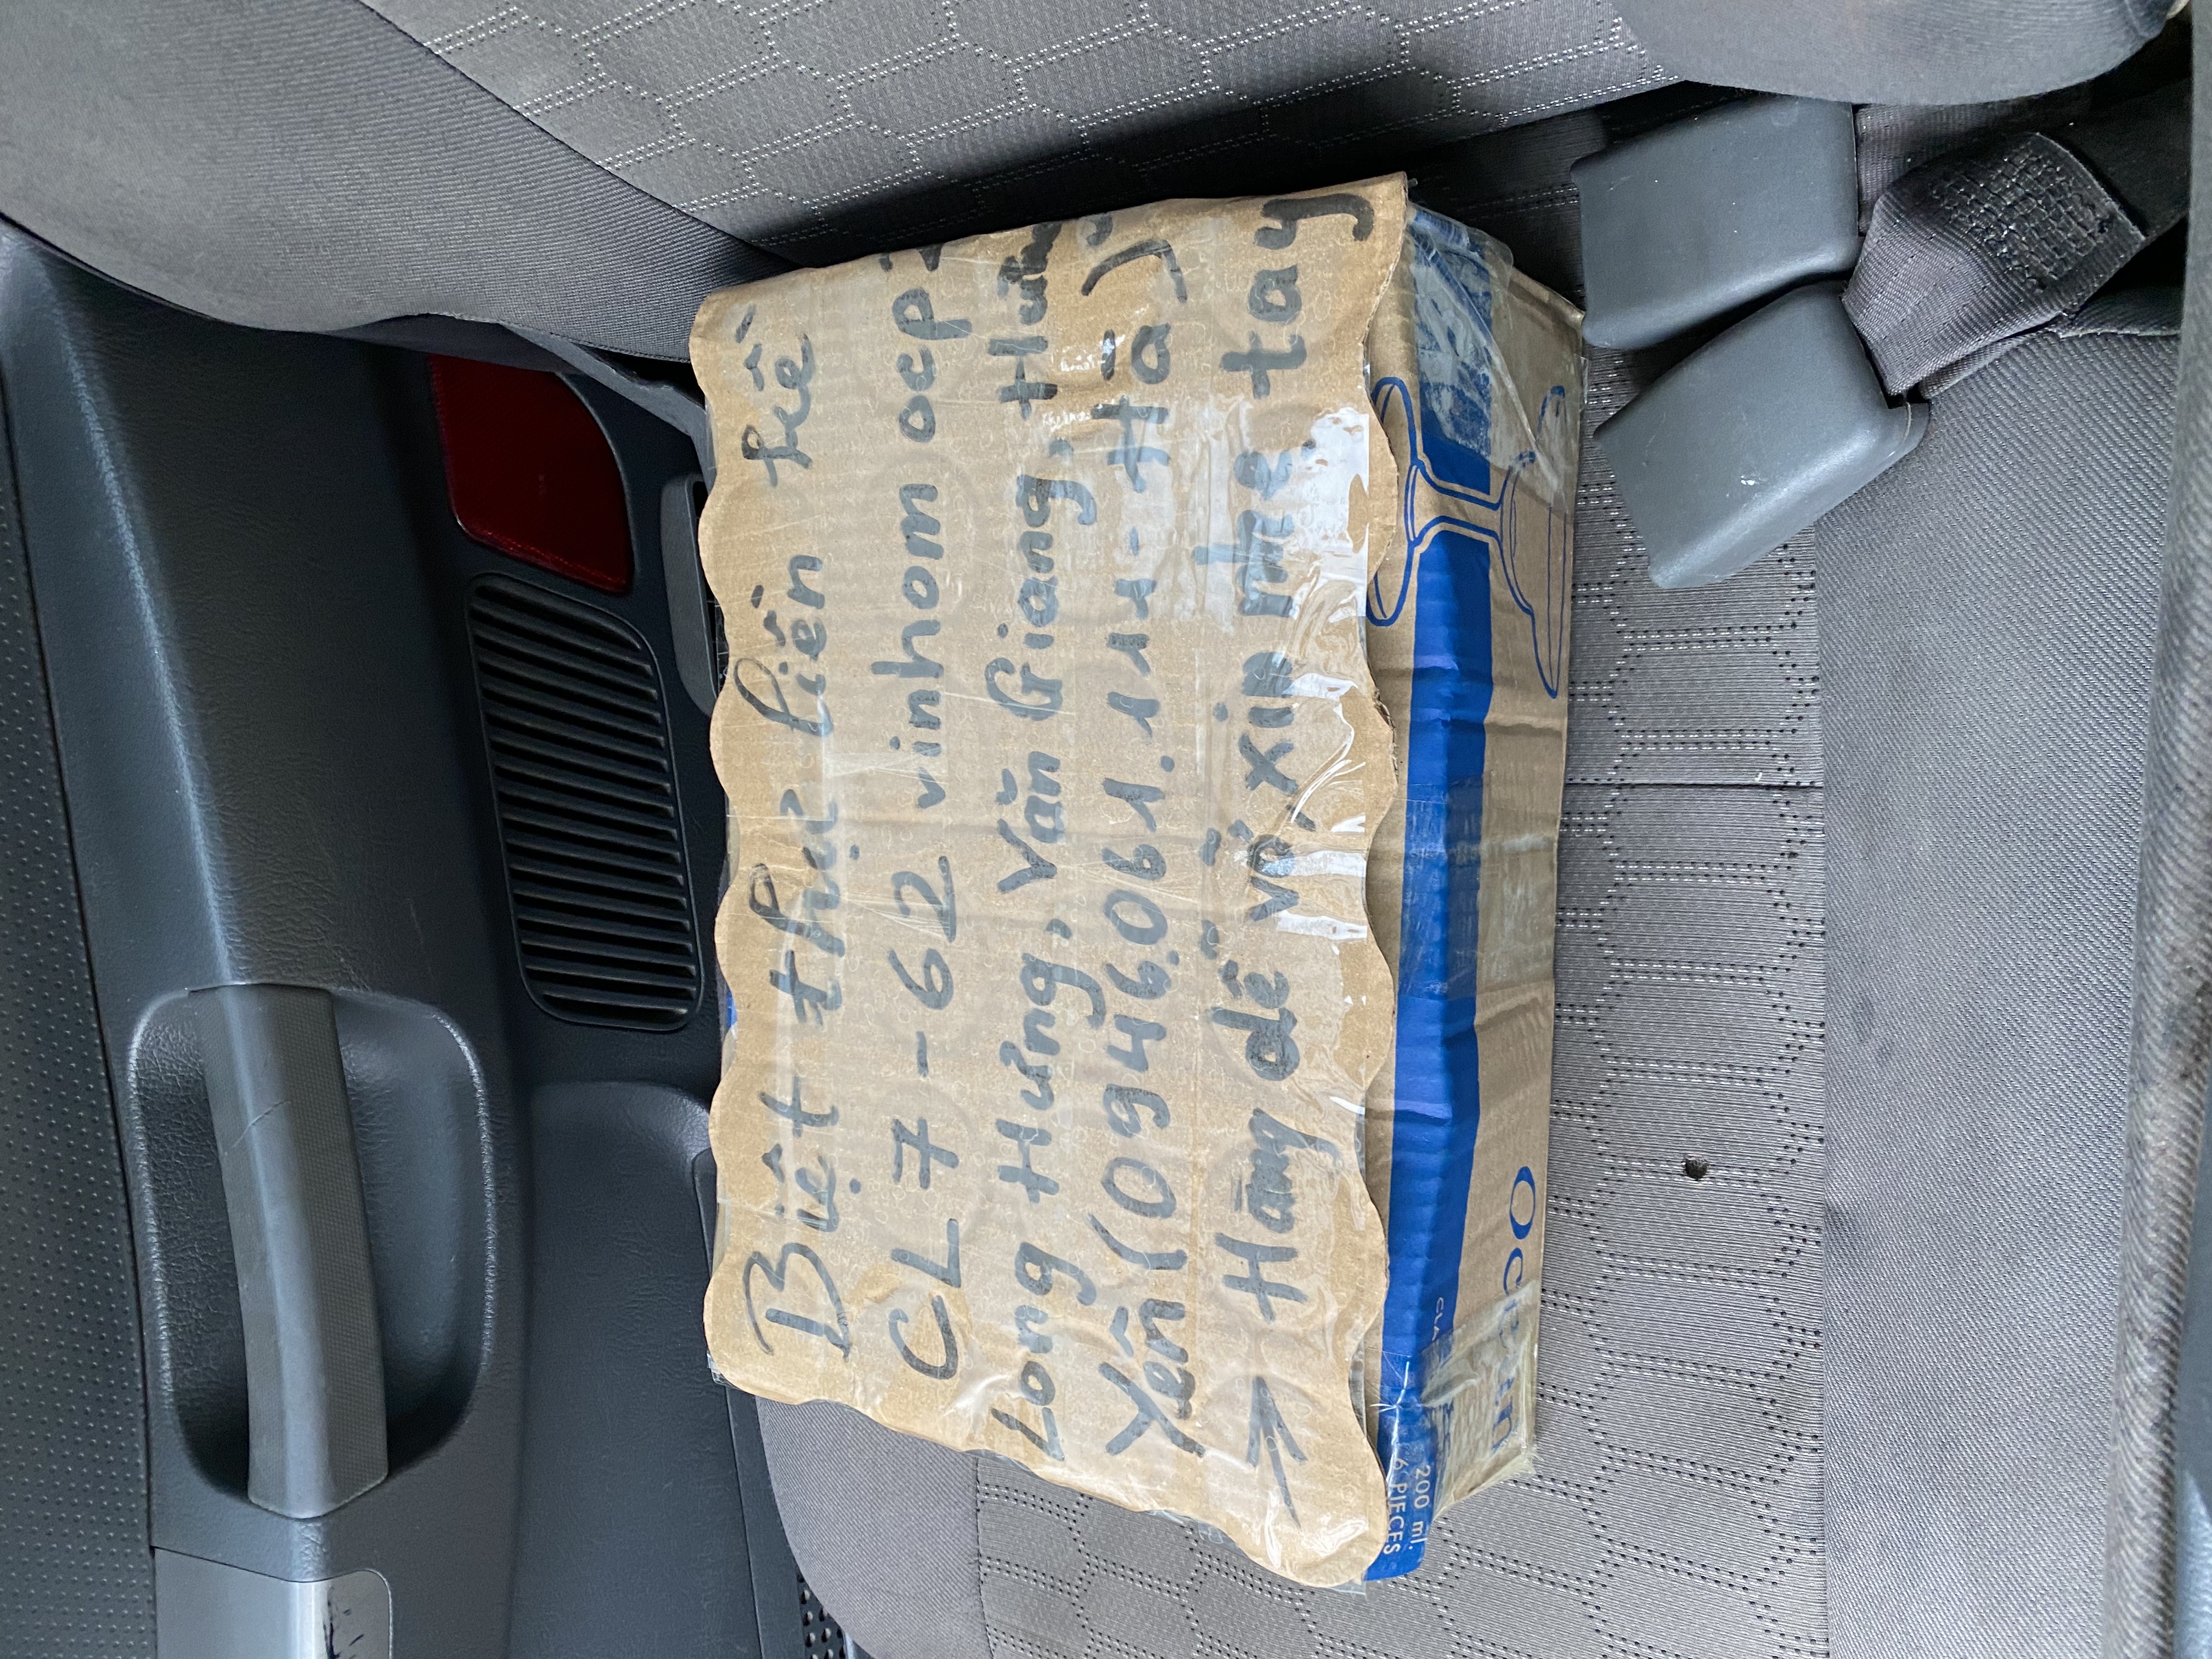 Biệt thự liền kề
CL7-62 vinhom ocp2
Long Hưng, Văn Giang, Hưn
Yến (0946.061.111-Hà)
→ Hàng dễ vỡ, xin nhẹ tay
Ocean
200 ml.
6 PIECES